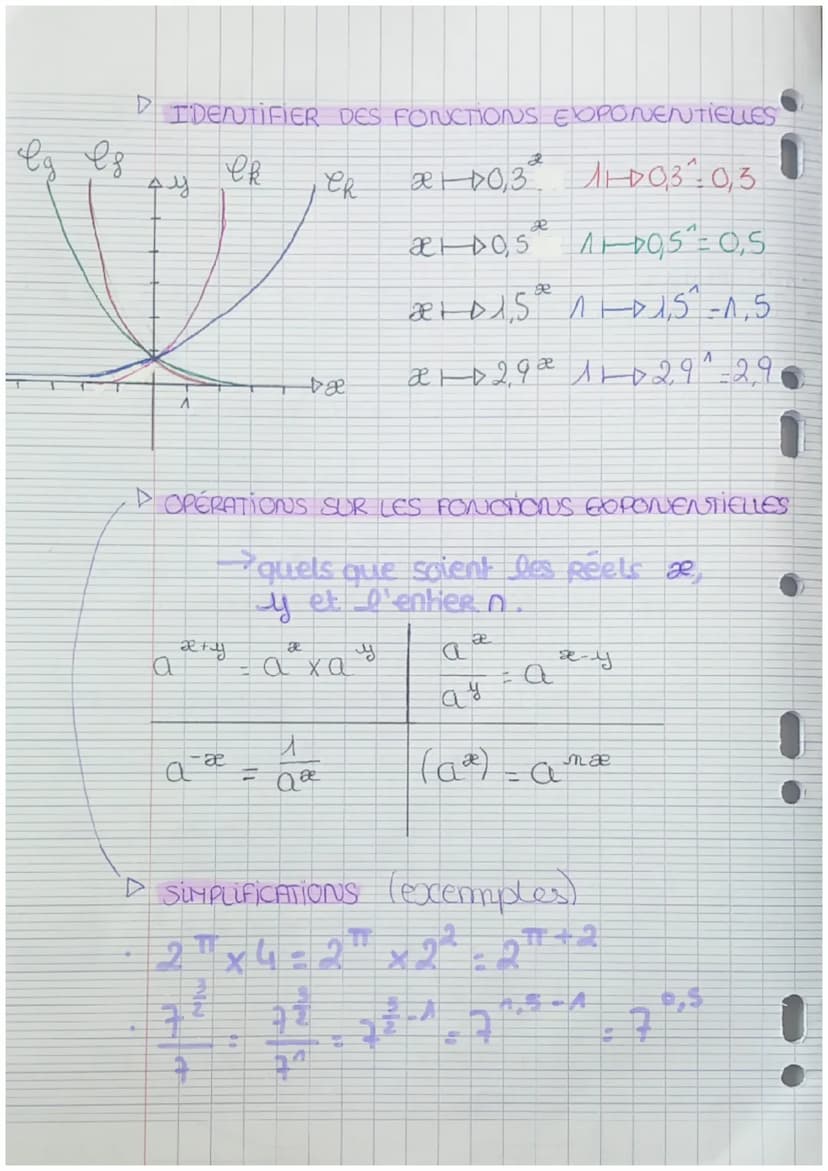 ▷ IDENTIFIER DES FONCTIONS EXPONENTIELLES
𝒞g 𝒞f 𝒞k 𝒞h
y
x
1
x ↦ 0,3^x 1 ↦ 0,3^1 = 0,3
x ↦ 0,5^x 1 ↦ 0,5^1 = 0,5
x ↦ 1,5^x 1 ↦ 1,5^1 = 1,5
x ↦ 2,9^x 1 ↦ 2,9^1 = 2,9
▷ OPÉRATIONS SUR LES FONCTIONS EXPONENTIELLES
→ quels que soient les réels x,
y et l'entier n.
a^(x+y) = a^x × a^y
a^x / a^y = a^(x-y)
a^(-x) = 1 / a^x
(a^x) = a^(nx)
▷ SIMPLIFICATIONS (exemples)
· 2^π × 4 = 2^π × 2^2 = 2^(π+2)
· 7^(3/2) / 7 = 7^(3/2) / 7^1 = 7^(3/2 - 1) = 7^(1,5-1) = 7^(0,5)